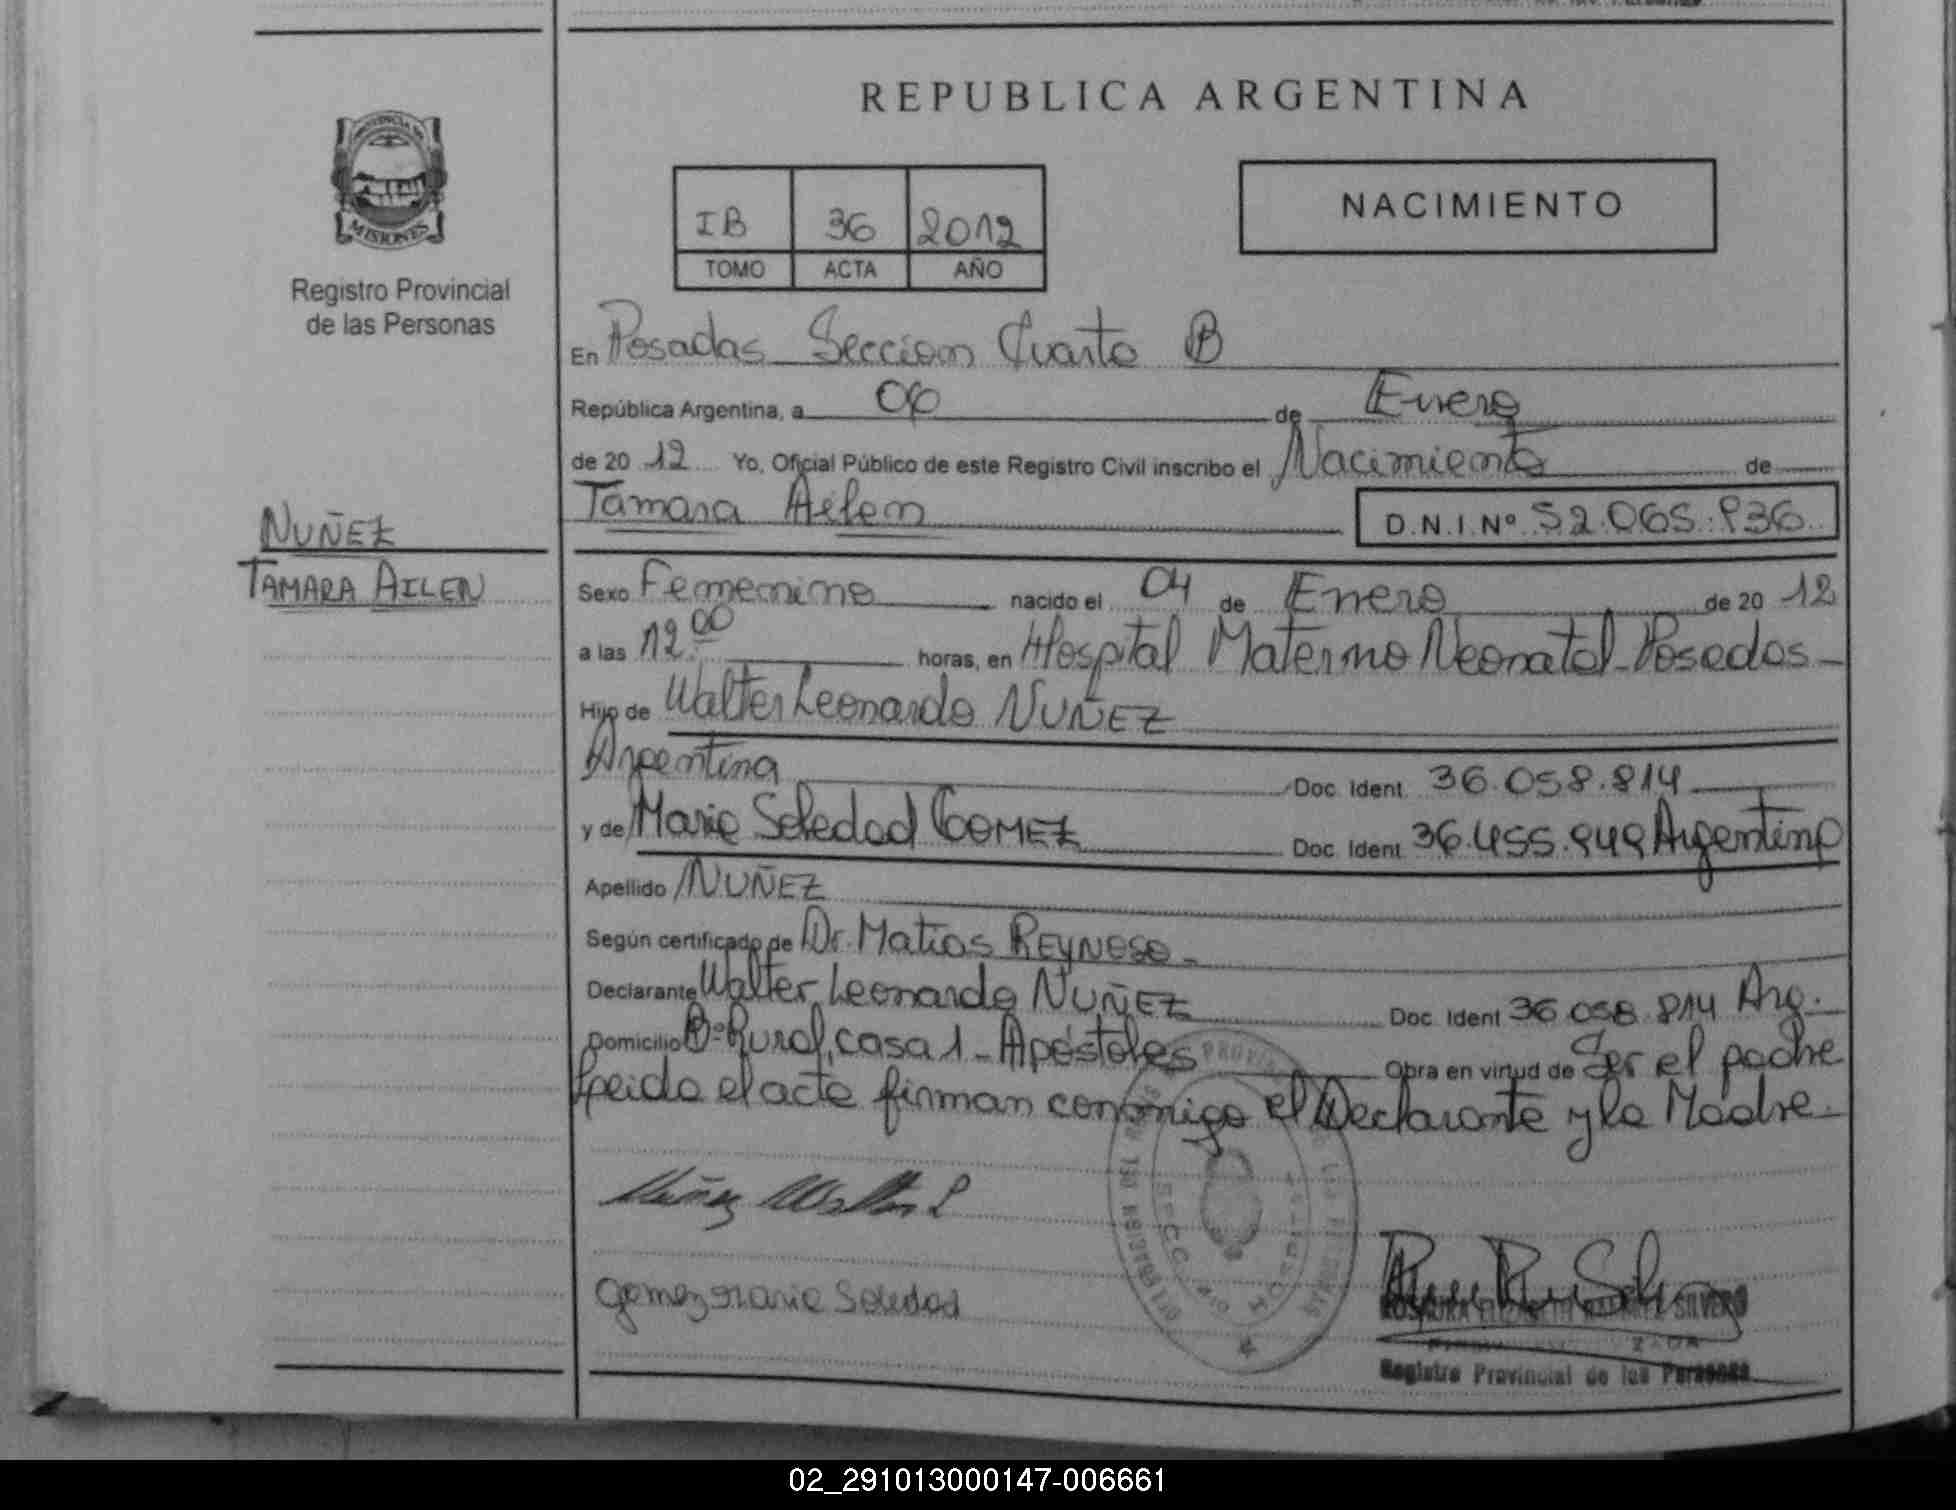 REPUBLICA ARGENTINA
PROVINCIA DE
MISIONES
Registro Provincial
de las Personas
IB 36 2012
TOMO ACTA AÑO
NACIMIENTO
En Posadas Seccion Cuarta B
República Argentina, a 06 de Enero
de 20 12 Yo, Oficial Público de este Registro Civil inscribo el Nacimiento de
Tamara Ailen D.N.I.Nº 52.065.936
NUÑEZ
TAMARA AILEN
Sexo Femenino nacido el 04 de Enero de 20 12
a las 12.00 horas, en Hospital Materno Neonatal-Posadas-
Hijo de Walter Leonardo NUÑEZ
Argentina Doc. Ident. 36.058.814
y de Maria Soledad GOMEZ Doc. Ident. 36.455.949 Argentina
Apellido NUÑEZ
Según certificado de Dr. Matias REYNOSO-
Declarante Walter Leonardo NUÑEZ Doc. Ident 36.058.814 Arg.
Domicilio Bº Rural, casa 1- Apóstoles Obra en virtud de Ser el padre
Leida el acta firman conmigo el Declarante y la Madre-
Nuñez Walter L
Gomez Maria Soledad
SILVERO
Registro Provincial de las Personas
02_291013000147-006661